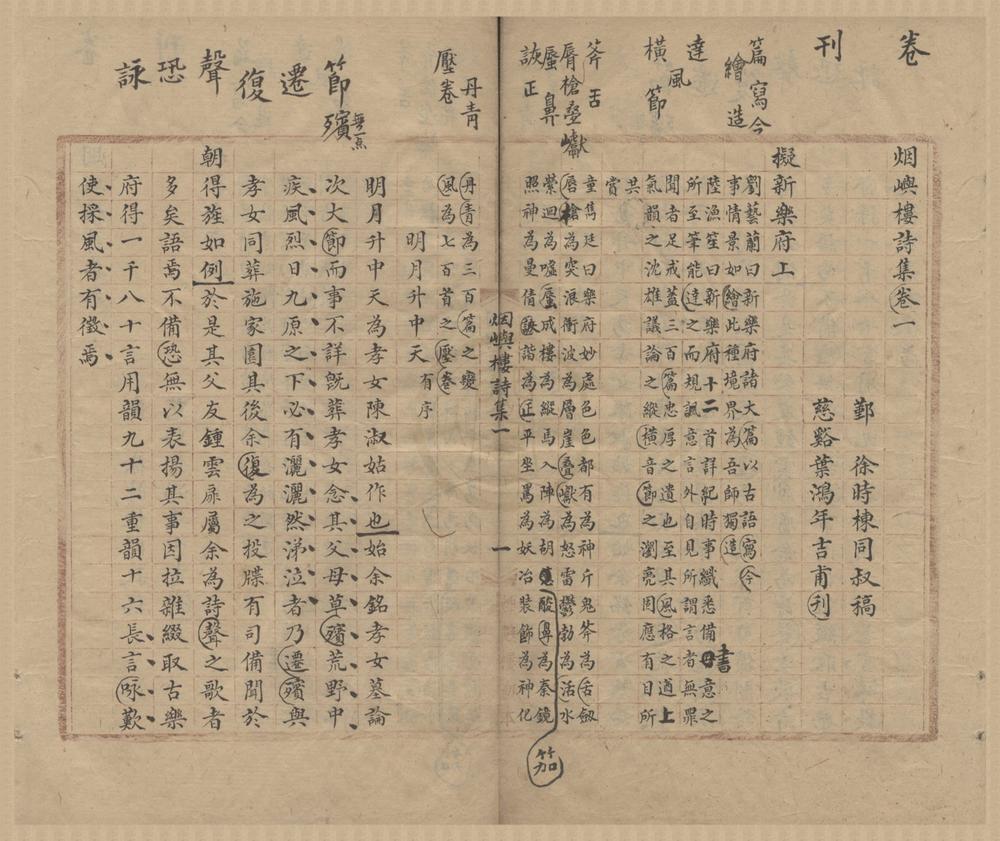 卷
刊
篇 寫 今
繪 造
達 風 節
橫
斧 舌
脣 槍 疊 巘
蜃 鼻
詼 正
丹青
壓卷
節 殯 無一点
遷
復
聲
恐
詠
烟嶼樓詩集卷一
鄞 徐時棟同叔稿
慈谿葉鴻年吉甫刊
擬新樂府上
劉藝蘭曰新樂府諸大篇以古語寫今
事情景如繪此種境界為吾師獨造
陸漁笙曰新樂府十二首詳紀時事纖悉備書意之
所至筆能達之而規諷意言外自見所謂言者無罪
聞者足戒蓋三百篇忠厚之遺也至其風格之遒上
氣韻之沈雄議論之縱橫音節之瀏亮周應有目所
共
賞
童雋廷曰樂府妙處色色都有為神斤鬼斧為舌劍
唇槍為突浪衝波為層崖疊巘為怒雷鬱勃為活水
縈迴為噓蜃成樓為縱馬入陣為胡笳酸鼻為秦鏡
照神為曼倩詼諧為正平坐罵為妖冶裝飾為神化
丹青為三百篇之變
風為七百首之壓卷
明月升中天有序
明月升中天為孝女陳淑姑作也始余銘孝女墓論
次大節而事不詳旣葬孝女念其父母草殯荒野中
疾風烈日九原之下必有灑灑然涕泣者乃遷殯與
孝女同葬施家園其後余復為之投牒有司備聞於
朝得旌如例於是其父友鍾雲扉屬余為詩聲之歌者
多矣語焉不備恐無以表揚其事因拉雜綴取古樂
府得一千八十言用韻九十二重韻十六長言詠歎
使採風者有徵焉
烟嶼樓詩集一
一
笳